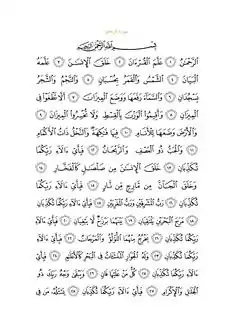 سورة الرحمن
بِسْمِ اللَّهِ الرَّحْمَٰنِ الرَّحِيمِ
الرَّحْمَٰنُ ١ عَلَّمَ الْقُرْءَانَ ٢ خَلَقَ الْإِنسَٰنَ ٣ عَلَّمَهُ
الْبَيَانَ ٤ الشَّمْسُ وَالْقَمَرُ بِحُسْبَانٍ ٥ وَالنَّجْمُ وَالشَّجَرُ
يَسْجُدَانِ ٦ وَالسَّمَاءَ رَفَعَهَا وَوَضَعَ الْمِيزَانَ ٧ أَلَّا تَطْغَوْا فِي
الْمِيزَانِ ٨ وَأَقِيمُوا الْوَزْنَ بِالْقِسْطِ وَلَا تُخْسِرُوا الْمِيزَانَ ٩
وَالْأَرْضَ وَضَعَهَا لِلْأَنَامِ ١٠ فِيهَا فَٰكِهَةٌ وَالنَّخْلُ ذَاتُ الْأَكْمَامِ
١١ وَالْحَبُّ ذُو الْعَصْفِ وَالرَّيْحَانُ ١٢ فَبِأَيِّ ءَالَاءِ رَبِّكُمَا
تُكَذِّبَانِ ١٣ خَلَقَ الْإِنسَٰنَ مِن صَلْصَٰلٍ كَالْفَخَّارِ ١٤
وَخَلَقَ الْجَانَّ مِن مَّارِجٍ مِّن نَّارٍ ١٥ فَبِأَيِّ ءَالَاءِ رَبِّكُمَا
تُكَذِّبَانِ ١٦ رَبُّ الْمَشْرِقَيْنِ وَرَبُّ الْمَغْرِبَيْنِ ١٧ فَبِأَيِّ ءَالَاءِ رَبِّكُمَا تُكَذِّبَانِ
١٨ مَرَجَ الْبَحْرَيْنِ يَلْتَقِيَانِ ١٩ بَيْنَهُمَا بَرْزَخٌ لَّا يَبْغِيَانِ ٢٠ فَبِأَيِّ ءَالَاءِ
رَبِّكُمَا تُكَذِّبَانِ ٢١ يَخْرُجُ مِنْهُمَا اللُّؤْلُؤُ وَالْمَرْجَانُ ٢٢ فَبِأَيِّ ءَالَاءِ
رَبِّكُمَا تُكَذِّبَانِ ٢٣ وَلَهُ الْجَوَارِ الْمُنشَـَٔاتُ فِي الْبَحْرِ كَالْأَعْلَٰمِ ٢٤ فَبِأَيِّ
ءَالَاءِ رَبِّكُمَا تُكَذِّبَانِ ٢٥ كُلُّ مَنْ عَلَيْهَا فَانٍ ٢٦ وَيَبْقَىٰ وَجْهُ رَبِّكَ ذُو
الْجَلَٰلِ وَالْإِكْرَامِ ٢٧ فَبِأَيِّ ءَالَاءِ رَبِّكُمَا تُكَذِّبَانِ ٢٨ يَسْـَٔلُهُ مَن فِي